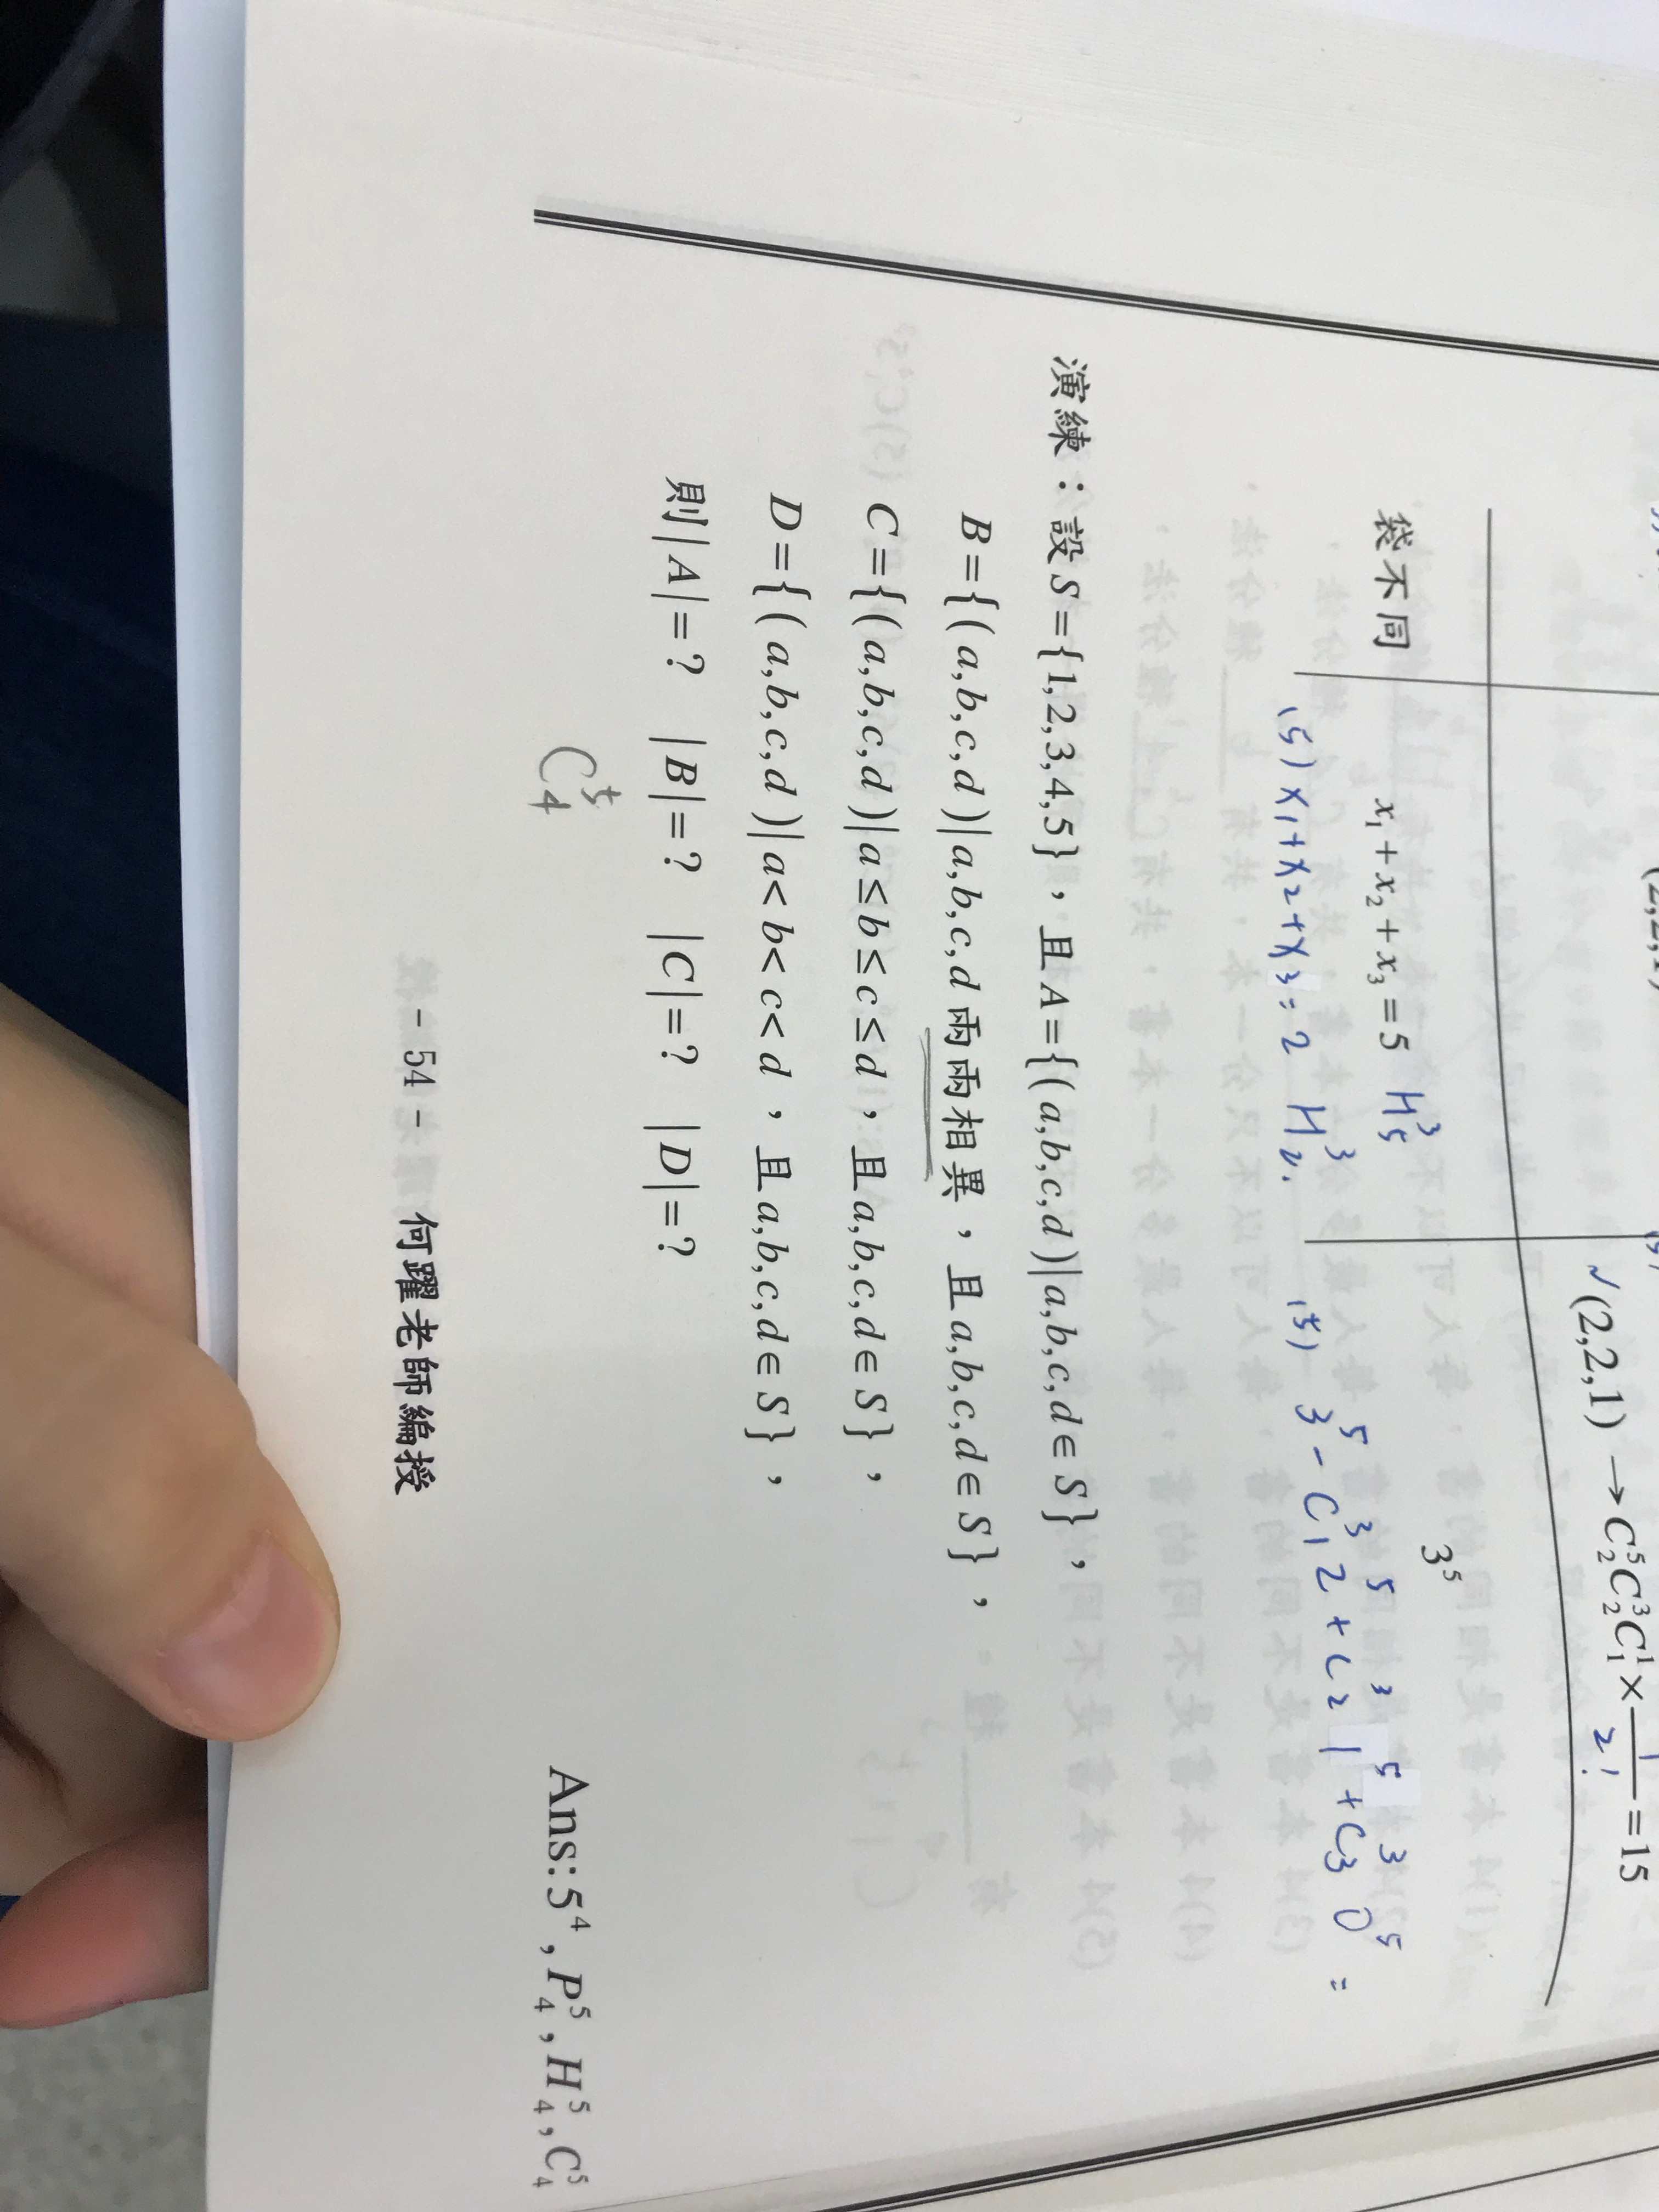 √(2,2,1) → C₂⁵C₂³C₁¹ × 1/2! = 15
袋不同
x₁+x₂+x₃=5 H₅³
3⁵
(5) x₁+x₂+x₃=2 H₂³
(5) 3⁵-C₁³2⁵+C₂³1⁵+C₃³0⁵=
演練：設S={1,2,3,4,5}，且A={(a,b,c,d)|a,b,c,d∈S}，
B={(a,b,c,d)|a,b,c,d兩兩相異，且a,b,c,d∈S}，
C={(a,b,c,d)|a≤b≤c≤d，且a,b,c,d∈S}，
D={(a,b,c,d)|a<b<c<d，且a,b,c,d∈S}，
則|A|=? |B|=? |C|=? |D|=?
C₄⁵
Ans:5⁴,P₄⁵,H₄⁵,C₄⁵
- 54 - 何躍老師編授